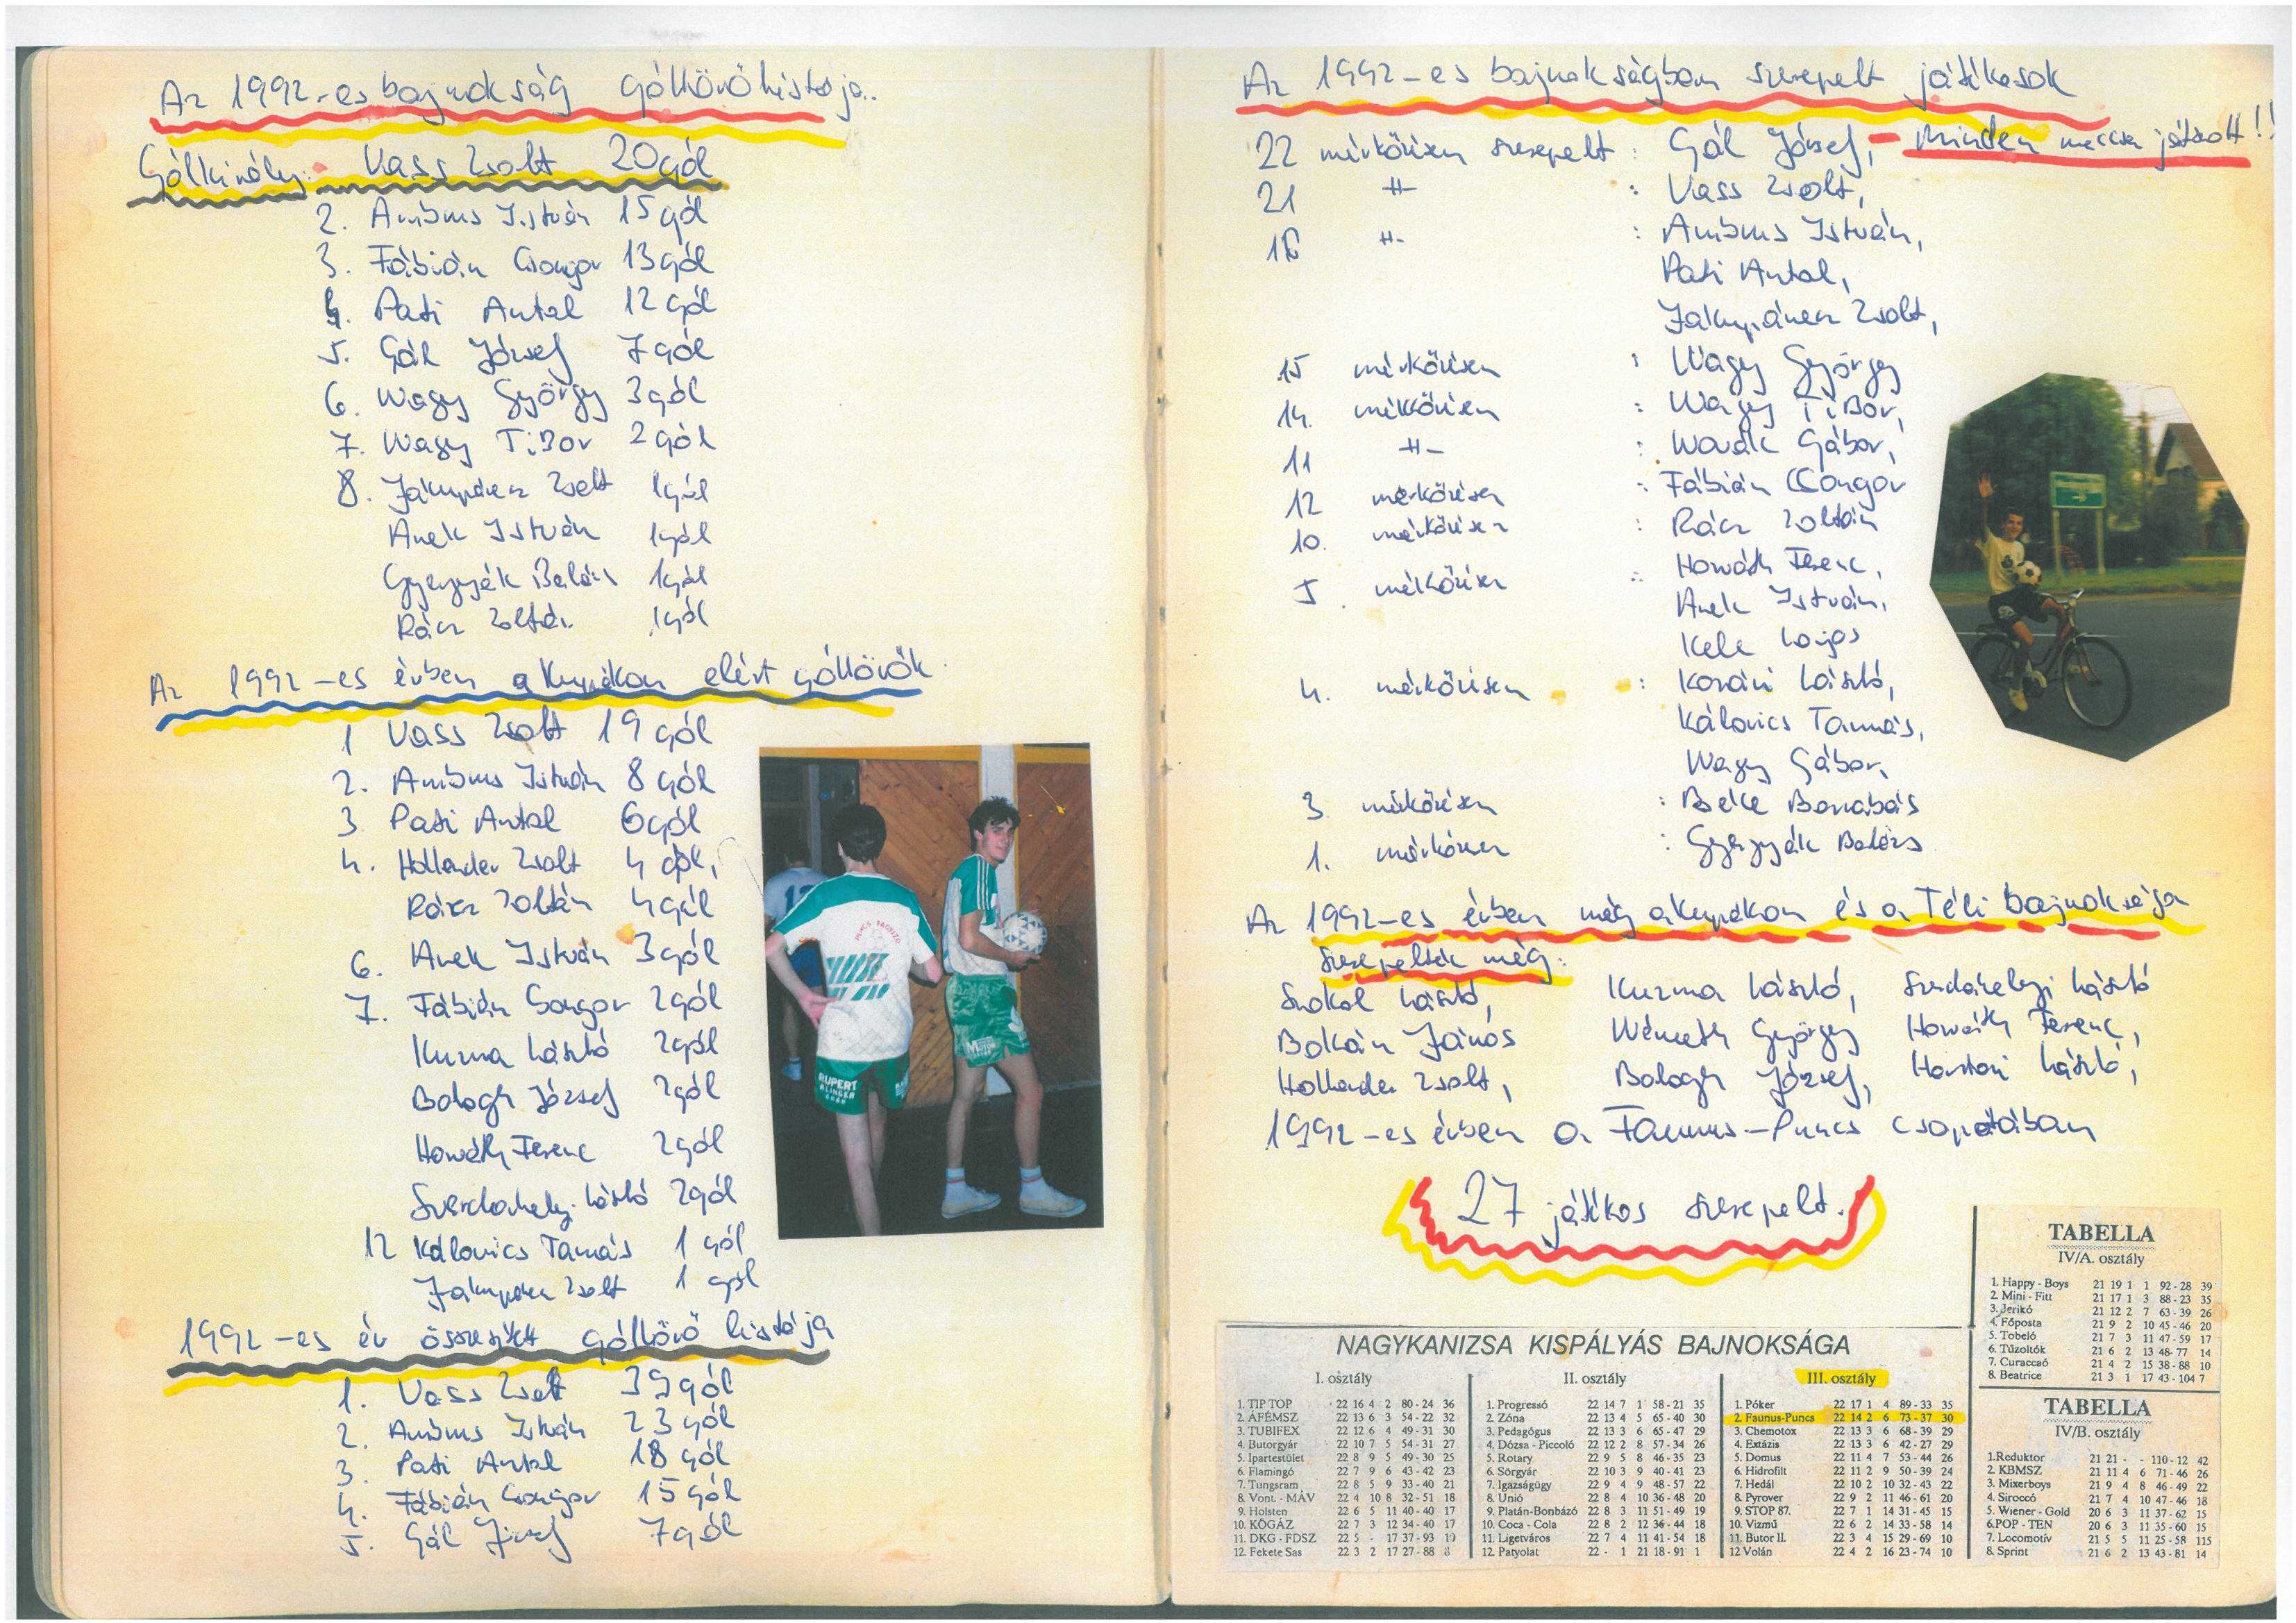 Az 1992-es bajnokság góllövőlistája..
Gólkirály: Vass Zsolt 20 gól
2. Ambrus István 15 gól
3. Fábián Csongor 13 gól
4. Pati Antal 12 gól
5. Gál József 7 gól
6. Nagy György 3 gól
7. Nagy TiBor 2 gól
8. Zsolt 1 gól
Anek István 1 gól
Gyergyák Balázs 1 gól
Rácz Zoltán 1 gól
Az 1992-es évben a kupákon elért góllövők.
1 Vass Zsolt 19 gól
2. Ambrus István 8 gól
3 Pati Antal 6 gól
4. Hollender Zsolt 4 gól,
Rácz Zoltán 4 gól
6. Anek István 3 gól
7. Fábián Csongor 2 gól
Kuzma László 2 gól
Balogh József 2 gól
Horváth Ferenc 2 gól
Szerdahelyi László 2 gól
12 Kálovics Tamás 1 gól
Zsolt 1 gól
1992-es év összesített góllövő listája
1. Vass Zsolt 39 gól
2. Ambrus István 23 gól
3. Pati Antal 18 gól
4. Fábián Csongor 15 gól
5. Gál József 7 gól
PUNCS FAGYIZÓ
RUPERT
KLINGER
12
Az 1992-es bajnokságban szerepelt játékosok
22 mérkőzésen szerepelt : Gál József, - Minden meccsen játszott!!
21 -"- : Vass Zsolt,
-"- : Ambrus István,
Pati Antal,
Zsolt,
15 mérkőzésen : Nagy György
14. mérkőzésen : Nagy TiBor,
11 -"- : Novák Gábor,
12 mérkőzésen : Fábián CSongor
10. mérkőzésen : Rácz Zoltán
5. mérkőzésen : Horváth Ferenc,
Anek István,
Kele Lajos
4. mérkőzésen : László,
Kálovics Tamás,
Nagy Gábor,
3 mérkőzésen : Béke Barnabás
1. mérkőzésen : Gyergyák Balázs
Az 1992-es évben még a kupákon és a Téli bajnoksága
szerepeltek még:
László, Kuzma László, Szerdahelyi László
Bolkán János Németh György Horváth Ferenc,
Hollender Zsolt, Balogh József, László,
1992-es évben a Faunus-Puncs csapatában
27 játékos szerepelt.
NAGYKANIZSA KISPÁLYÁS BAJNOKSÁGA
I. osztály
1. TIP TOP 22 16 4 2 80-24 36
2. ÁFÉMSZ 22 13 6 3 54-22 32
3. TUBIFEX 22 12 6 4 49-31 30
4. Butorgyár 22 10 7 5 54-31 27
5. Ipartestület 22 8 9 5 49-30 25
6. Flamingó 22 7 9 6 43-42 23
7. Tungsram 22 8 5 9 33-40 21
8. Vont. - MÁV 22 4 10 8 32-51 18
9. Holsten 22 6 5 11 40-40 17
10. KÖGÁZ 22 7 3 12 34-40 17
11. DKG - FDSZ 22 5 - 17 37-93 10
12. Fekete Sas 22 3 2 17 27-88 8
II. osztály
1. Progressó 22 14 7 1 58-21 35
2. Zóna 22 13 4 5 65-40 30
3. Pedagógus 22 13 3 6 65-47 29
4. Dózsa - Piccoló 22 12 2 8 57-34 26
5. Rotary 22 9 5 8 46-35 23
6. Sörgyár 22 10 3 9 40-41 23
7. Igazságügy 22 9 4 9 48-57 22
8. Unió 22 8 4 10 36-48 20
9. Platán-Bonbázó 22 8 3 11 51-49 19
10. Coca - Cola 22 8 2 12 36-44 18
11. Ligetváros 22 7 4 11 41-54 18
12. Patyolat 22 - 1 21 18-91 1
III. osztály
1. Póker 22 17 1 4 89-33 35
2. Faunus-Puncs 22 14 2 6 73-37 30
3. Chemotox 22 13 3 6 68-39 29
4. Extázis 22 13 3 6 42-27 29
5. Domus 22 11 4 7 53-44 26
6. Hidrofilt 22 11 2 9 50-39 24
7. Hedál 22 10 2 10 32-43 22
8. Pyrover 22 9 2 11 46-61 20
9. STOP 87. 22 7 1 14 31-45 15
10. Vizmű 22 6 2 14 33-58 14
11. Butor II. 22 3 4 15 29-69 10
12 Volán 22 4 2 16 23-74 10
TABELLA
IV/A. osztály
1. Happy - Boys 21 19 1 1 92-28 39
2. Mini - Fitt 21 17 1 3 88-23 35
3. Jerikó 21 12 2 7 63-39 26
4. Főposta 21 9 2 10 45-46 20
5. Tobeló 21 7 3 11 47-59 17
6. Tűzoltók 21 6 2 13 48-77 14
7. Curaccaó 21 4 2 15 38-88 10
8. Beatrice 21 3 1 17 43-104 7
TABELLA
IV/B. osztály
1.Reduktor 21 21 - - 110-12 42
2. KBMSZ 21 11 4 6 71-46 26
3. Mixerboys 21 9 4 8 46-49 22
4. Siroccó 21 7 4 10 47-46 18
5. Wiener - Gold 20 6 3 11 37-62 15
6.POP - TEN 20 6 3 11 35-60 15
7. Locomotív 21 5 5 11 25-58 115
8. Sprint 21 6 2 13 43-81 14